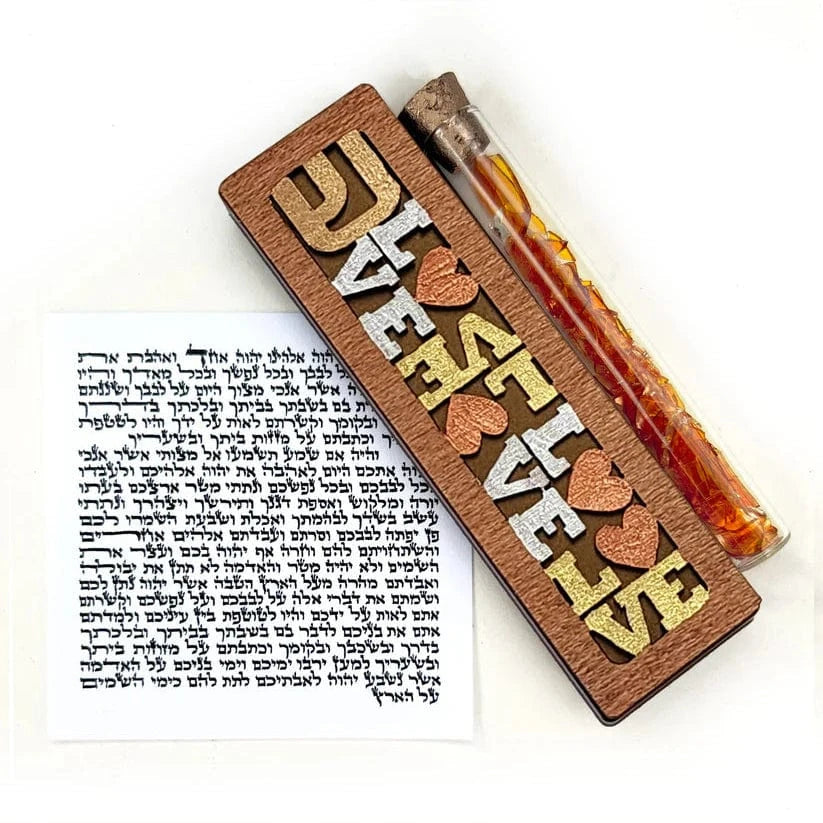 אלהינו יהוה אחד ואהבת את
לבבך ובכל נפשך ובכל מאדך והיו
אשר אנכי מצוך היום על לבבך ושננתם
בם בשבתך בביתך ובלכתך בדרך
ובקומך וקשרתם לאות על ידך והיו לטטפת
וכתבתם על מזזות ביתך ובשעריך
והיה אם שמע תשמעו אל מצותי אשר אנכי
אתכם היום לאהבה את יהוה אלהיכם ולעבדו
בכל לבבכם ובכל נפשכם ונתתי מטר ארצכם בעתו
יורה ומלקוש ואספת דגנך ותירשך ויצהרך ונתתי
עשב בשדך לבהמתך ואכלת ושבעת השמרו לכם
פן יפתה לבבכם וסרתם ועבדתם אלהים אחרים
והשתחויתם להם וחרה אף יהוה בכם ועצר את
השמים ולא יהיה מטר והאדמה לא תתן את יבולה
ואבדתם מהרה מעל הארץ הטבה אשר יהוה נתן לכם
ושמתם את דברי אלה על לבבכם ועל נפשכם וקשרתם
אתם לאות על ידכם והיו לטוטפת בין עיניכם ולמדתם
אתם את בניכם לדבר בם בשבתך בביתך ובלכתך
בדרך ובשכבך ובקומך וכתבתם על מזוזות ביתך
ובשעריך למען ירבו ימיכם וימי בניכם על האדמה
אשר נשבע יהוה לאבתיכם לתת להם כימי השמים
על הארץ
ש
L
VE
LVE
L
VE
L
VE